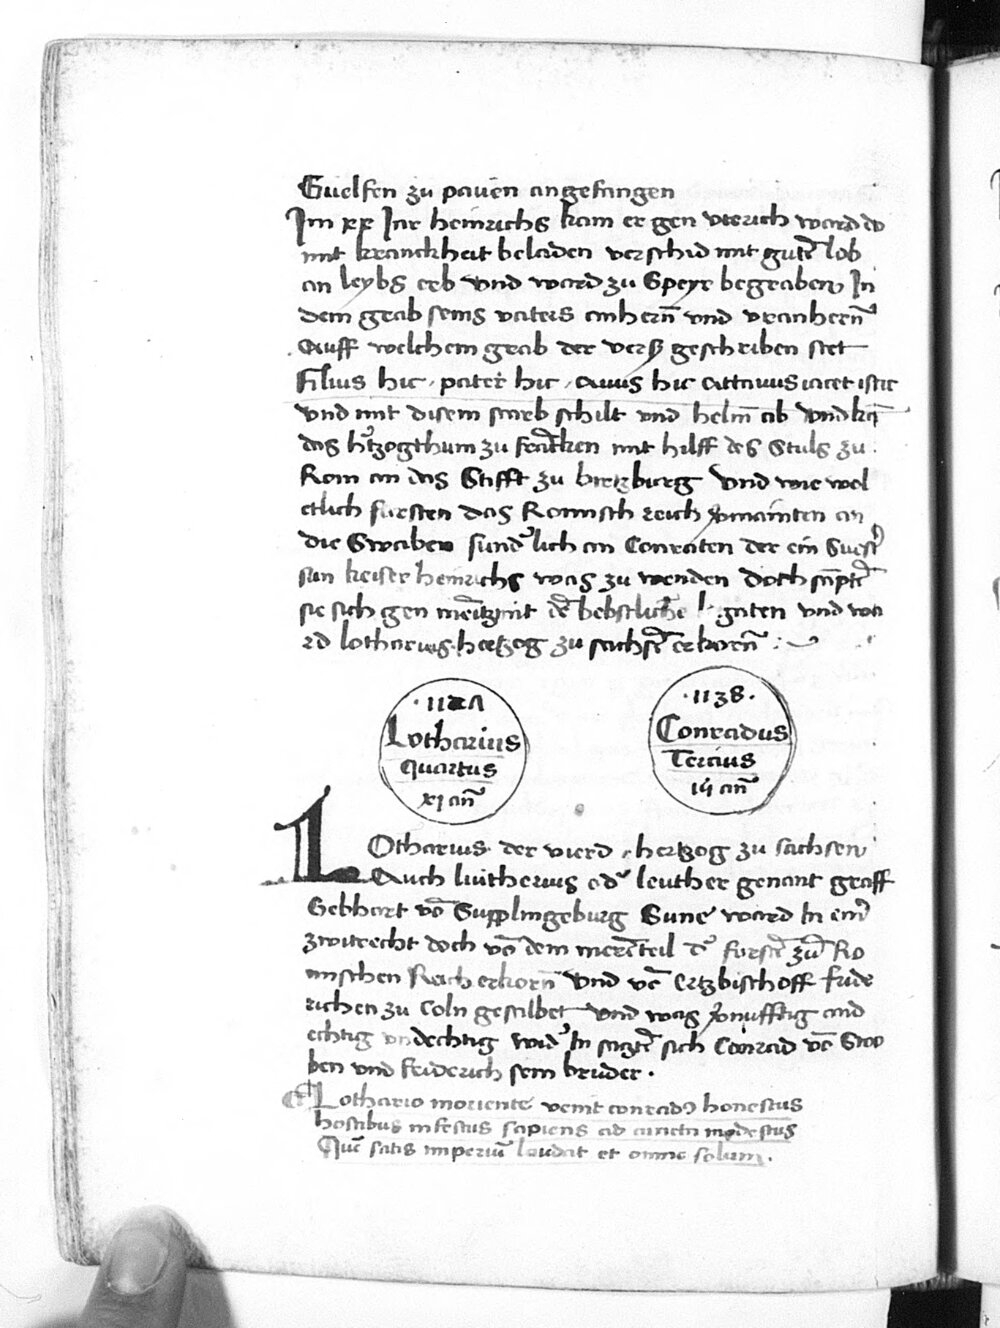 Guelfen zu paven angefangen
Im xx Jar heinrichs kam er gen vtrich ward do
mit kranckheit beladen verschid mit gutē lob
an leybs erb vnd ward zu Speyr begraben In
dem grab seins vaters anhern̄ vnd vranhern̄
Auff welchem grab der verß geschriben stet
Filius hic pater hic auus hic attauus iacet istic
vnd mit disem starb schilt vnd helm ab vnd kā
das htzogthum zu francken mit hilff des Stuls zu
Rom an das Stifft zu wirtzburg vnd wie wol
etlich fursten das Romisch reich vermainten an
die Swaben sunderlich an Conraten der ein Suest
sun keiser heinrichs was zu wenden doch
sie sich gen mēitz mit bebstliche guten vnd wa
rd lotharius hertzog zu sachsē erkorn̄
Lotharius
Quartus
xj an̄
1138
Conradus
Tercius
an̄
LOtharius der vierd hertzog zu sachsen
Auch luitherius od leuther genant graff
Gebhart vō Supplingeburg Sune ward In
zwitrecht doch vō dem merētteil Forstē zū Ro
mischen Reich erkorn̄ vnd vō Ertzbischoff fride
richen zu Coln gesalbet vnd was vernufftig and
echtig vndechtig wid In satztē sich Conrad vō Swo
ben vnd friderich sein bruder .
Lothario moriente venit conrad9 honestus
hostibus infestus sapiens ad cuncta modestus
Quē satis imperiū laudat et omne solum .